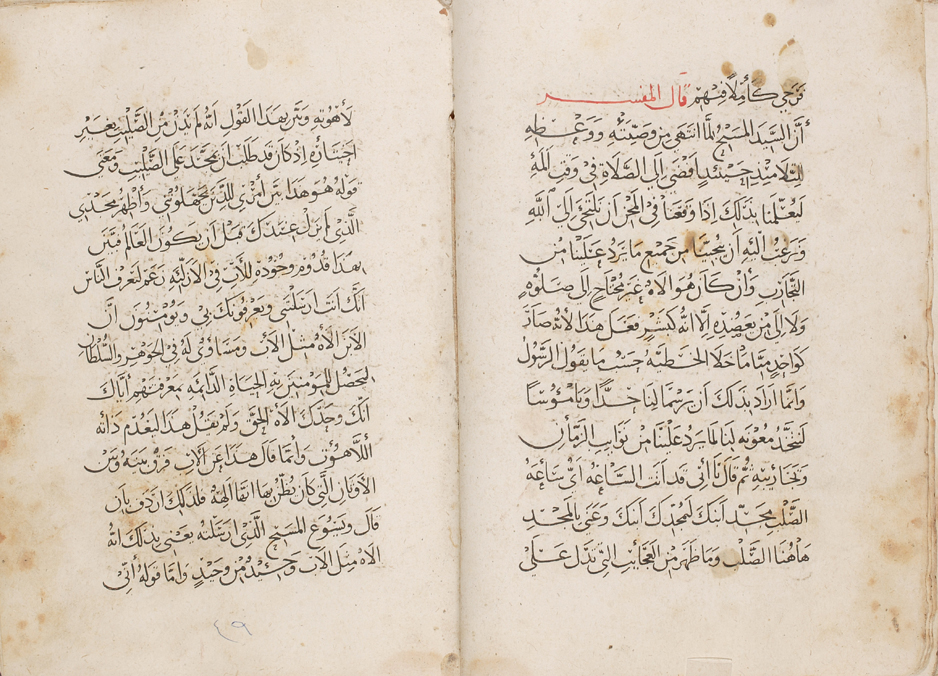 فرحي كاملاً فيهم قال المفسر
أن السيد المسيح لما انتهى من وصيته ووعظه
للتلاميذ حينئدٍ افضى إلى الصلاة في وقت المه
ليعلمنا بذلك اذا وقعنا في المحن ان نلتجي إلى الله
ونرغب اليه أن ينجينا من جميع ما يرد علينا من
التجارب وأن كان هو الاه غير محتاج إلى صلوه
ولا إلى من يعضده إلا انه كبشر فعل هذا لأنه صار
كواحد منا ما خلا الخطيه حسب ما يقول الرسول
وانما اراد بذلك ان يرسما لنا حدًا وناموسًا
لنتخذ معونه لنا لما يرد علينا من نوايب الزمان
وتجاريبه ثم قال يا ابي قد اتت الساعة اي ساعه
الصلب مجد ابنك ليمجدك ابنك وعني بالمجد
هاهنا الصلب وما ظهر من العجايب التي تدل على
لاهوته وتبين بهدا القول انه لم يدن من الصليب بغير
اختيانه إذ كان قد طلب ان يمجد على الصليب ومعنى
قوله هو هدا بين أمري للدين يجهلوني وأظهر مجدي
الذي لم يزل عندك قبل أن يكون العالم فبين
بهدا قدوم وجوده للأب في الازليه زعم ليعرف الناس
انك انت ارسلتني ويعرفونك بي ويومنون أن
الابن الاه مثل الاب ومساوي له في الجوهر والسلطان
ليحصل للمومنين به الحياة الدايمه معرفتهم اياك
انك وحدك الاه الحق ولم يقل هدا ليعدم داته
اللاهوت وانما قال هدا عن الاب فرق بينه وبين
الأوثان التي كان يظن بها انها الهة فلدلك اردف بان
قال ويسوع المسيح الذي ارسلته يعني بدلك انه
الاه مثل الأب وحيد من وحيدٍ واما قوله أني
٤٩